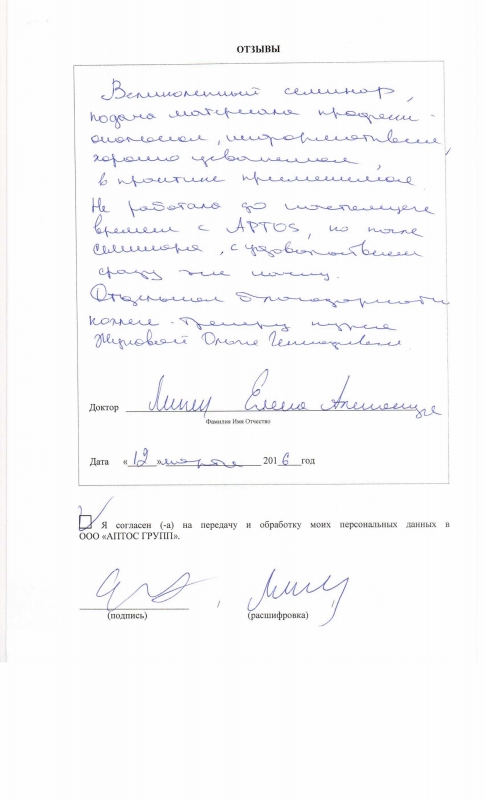 ОТЗЫВЫ
Великолепный семинар,
подача материала професси-
ональная, информативная
хорошо усваиваемая,
в практике применимая.
Не работала до настоящего
времени с APTOS, но после
семинара, с удовольствием
сразу же начну.
Отдельная благодарность
коллеге-тренеру курса
Жуковой Ольге Геннадьевне.
Доктор Елена
Фамилия Имя Отчество
Дата «12» марта 2016 год
Я согласен (-а) на передачу и обработку моих персональных данных в
ООО «АПТОС ГРУПП».
(подпись) (расшифровка)